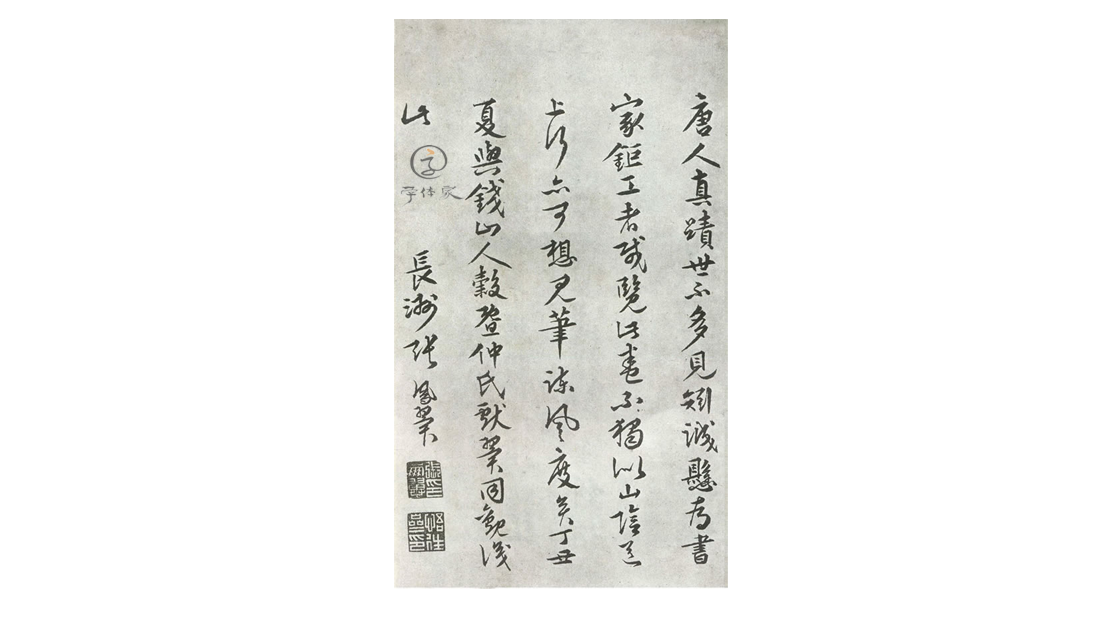 唐人真蹟世不多見矧誠懸為書
家鉅工者哉覽此卷不獨似山陰道
上行亦可想見筆諫風度矣丁丑
夏與錢山人穀暨仲氏獻翼同觀識
此
長洲張鳳翼
字
字体家